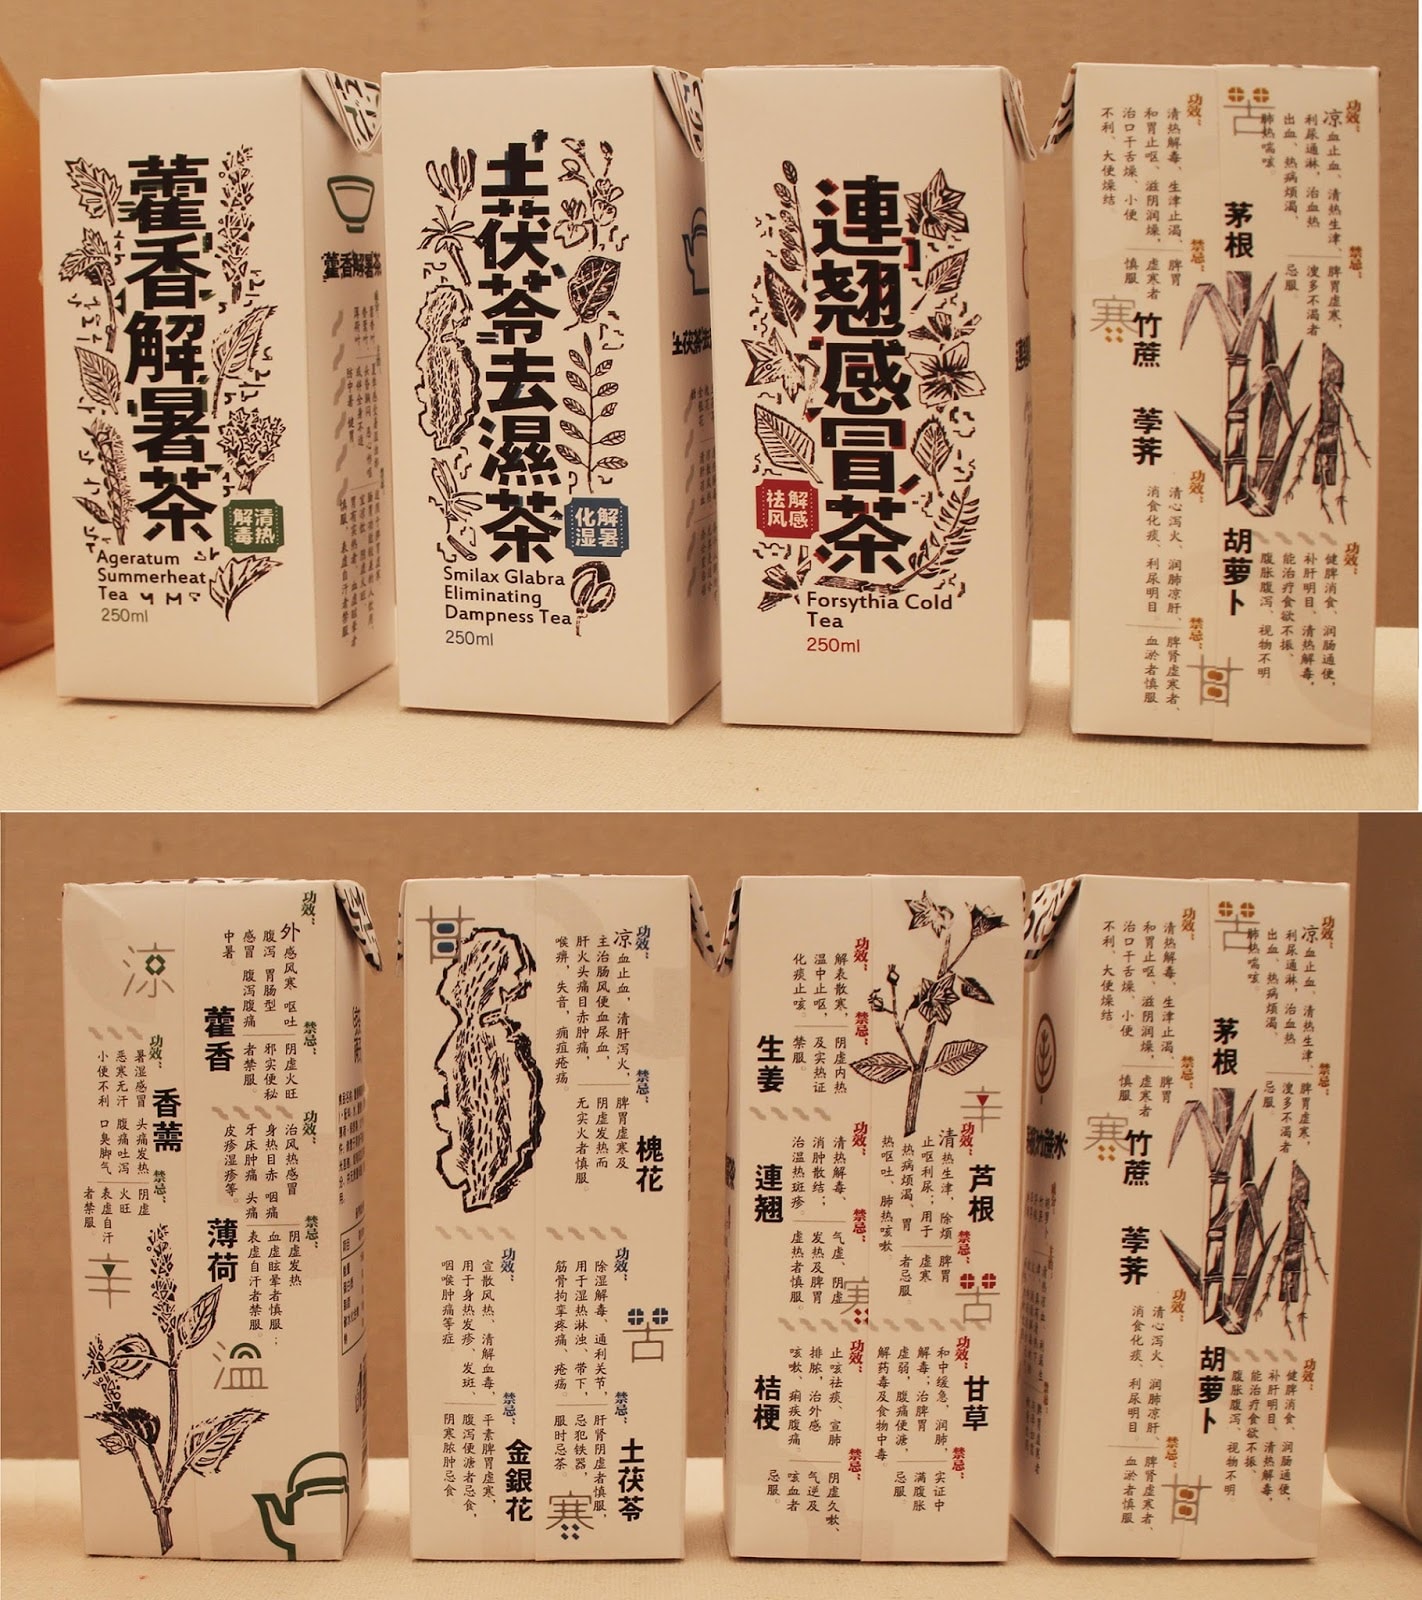 藿香解暑茶
清热
解毒
Ageratum
Summerheat
Tea
250ml
藿香解暑茶
土茯苓去濕茶
解暑
化湿
Smilax Glabra
Eliminating
Dampness Tea
250ml
連翹感冒茶
解感
祛风
Forsythia Cold
Tea
250ml
功效：
凉血止血、清热生津、
利尿通淋，治血热
出血、热病烦渴、
肺热喘咳。
禁忌：
脾胃虚寒，
溲多不渴者
忌服。
苦
茅根
功效：
清热解毒、生津止渴、
和胃止呕、滋阴润燥，
治口干舌燥、小便
不利、大便燥结。
禁忌：
脾胃
虚寒者
慎服
寒
竹蔗
荸荠
功效：
清心泻火、润肺凉肝、
消食化痰、利尿明目。
禁忌：
脾肾虚寒者、
血淤者慎服
胡萝卜
功效：
健脾消食、润肠通便，
补肝明目、清热解毒，
能治疗食欲不振、
腹胀腹泻、视物不明。
甘
凉
功效：
外感风寒 呕吐
腹泻 胃肠型
感冒 腹泻腹痛
中暑。
禁忌：
阴虚火旺
邪实便秘
者禁服。
藿香
功效：
暑湿感冒 头痛发热
恶寒无汗 腹痛吐泻
小便不利 口臭脚气。
禁忌：
阴虚
火旺
表虚自汗
者禁服。
香薷
功效：
治风热感冒
身热目赤 咽痛
牙床肿痛 头痛
皮疹湿疹等。
禁忌：
阴虚发热
血虚眩晕者慎服；
表虚自汗者禁服。
薄荷
辛
温
甘
功效：
凉血止血，清肝泻火，
主治肠风便血尿血，
肝火头痛目赤肿痛，
喉痹，失音，痈疽疮疡。
禁忌：
脾胃虚寒及
阴虚发热而
无实火者慎服。
槐花
功效：
宣散风热、清解血毒，
用于身热发疹、发斑、
咽喉肿痛等症
禁忌：
平素脾胃虚寒，
腹泻便溏者忌食，
阴寒脓肿忌食
金銀花
功效：
除湿解毒、通利关节，
用于湿热淋浊、带下，
筋骨拘挛疼痛、疮疡。
禁忌：
肝肾阴虚者慎服，
忌犯铁器，
服时忌茶。
土茯苓
苦
寒
功效：
解表散寒，
温中止呕，
化痰止咳。
禁忌：
阴虚内热
及实热证
禁服。
生姜
功效：
清热解毒、
消肿散结；
治温热斑疹。
禁忌：
气虚、阴虚
发热及脾胃
虚热者慎服。
連翹
功效：
止咳祛痰、宣肺
排脓，治外感
咳嗽、痢疾腹痛。
禁忌：
阴虚久嗽、
气逆及
咳血者
忌服。
桔梗
辛
功效：
清热生津、除烦
止呕利尿；用于
热病烦渴、胃
热呕吐、肺热咳嗽。
禁忌：
脾胃
虚寒
者忌服
芦根
苦
寒
功效：
和中缓急、润肺，
解毒；治脾胃
虚弱，腹痛便溏，
解药毒及食物中毒。
禁忌：
实证中
满腹胀
忌服。
甘草
功效：
凉血止血、清热生津、
利尿通淋，治血热
出血、热病烦渴、
肺热喘咳。
禁忌：
脾胃虚寒，
溲多不渴者
忌服
苦
茅根
功效：
清热解毒、生津止渴、
和胃止呕、滋阴润燥，
治口干舌燥、小便
不利、大便燥结。
禁忌：
脾胃
虚寒者
慎服
寒
竹蔗
荸荠
功效：
清心泻火、润肺凉肝、
消食化痰、利尿明目。
禁忌：
脾肾虚寒者、
血淤者慎服
胡萝卜
功效：
健脾消食、润肠通便，
补肝明目、清热解毒，
能治疗食欲不振、
腹胀腹泻、视物不明。
甘